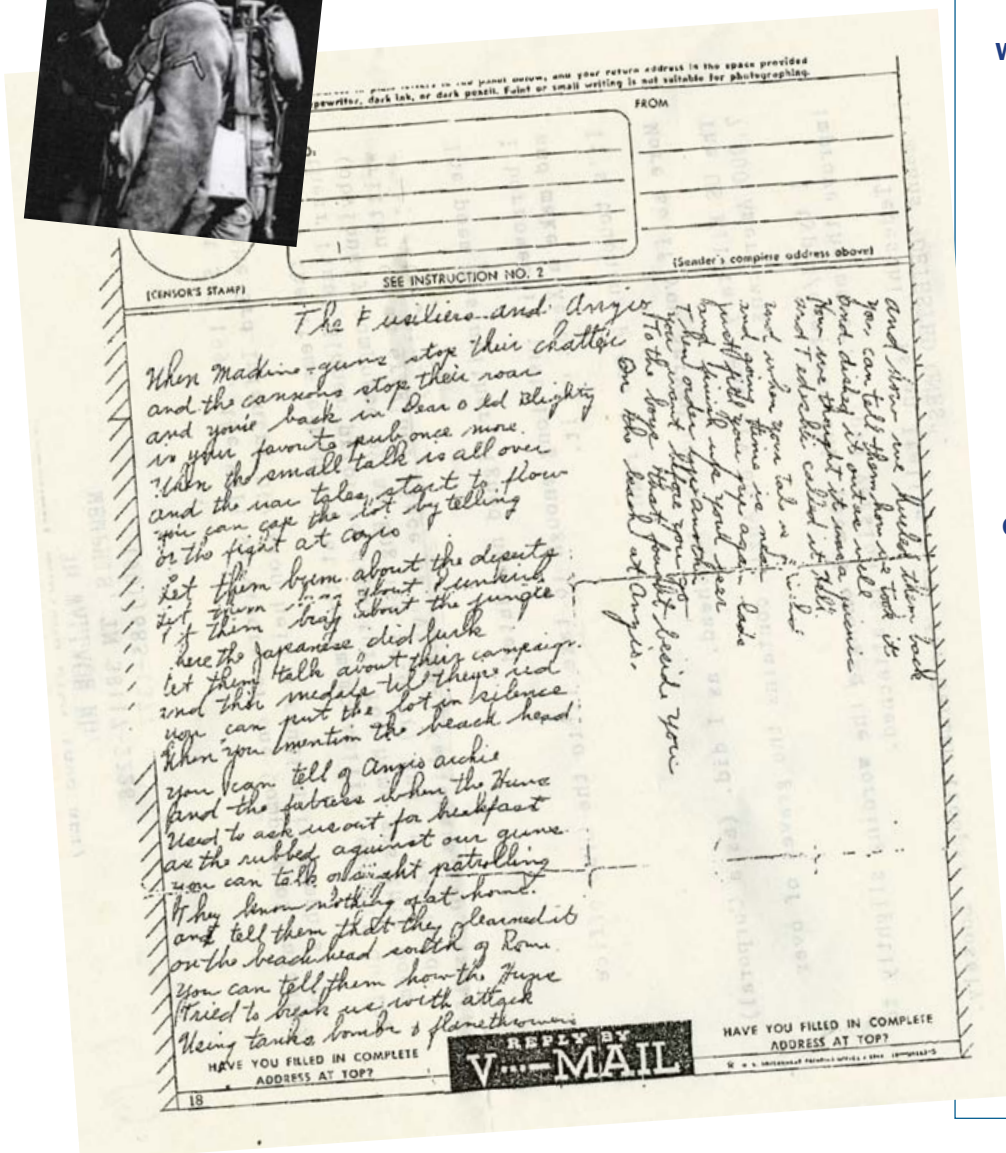 address in the space provided
typewriter, dark ink, or dark pencil. Faint or small writing is not suitable for photographing.
FROM
(CENSOR'S STAMP)
SEE INSTRUCTION NO. 2
(Sender's complete address above)
The Fusiliers and Anzio
When Machine-guns stop their chatter
and the cannons stop their roar
and you're back in Dear old Blighty
in your favorite pub once more.
When the small talk is all over
and the war tales start to flow
you can cap the lot by telling
of the fight at
Let them about the deserts
let them about Dunkirk
let them brag about the jungle
where the Japanese did lurk
let them talk about their campaign.
and their medals til they're red
you can put the lot in silence
When you mention the beach head
you can tell of Anzio archie
and the when the Huns
Used to ask us out for breakfast
as the rubbed against our guns.
you can talk of night patrolling
They know nothing of at home.
and tell them that they learned it
on the beachhead south of Rome.
you can tell them how the Huns
tried to break us with attack
Using tanks bombs & flamethrowers
and how we hurled them back
you can tell them how we took it
and dished it out as well
How we thought it was a
and Tedeschi called it Hell.
and when your tale is
and going time is near
just fill your pipe again lads
and finish up your beer
Then order up another
you want before you go
To the boys that fought beside you
On the beach at Anzio.
HAVE YOU FILLED IN COMPLETE
ADDRESS AT TOP?
REPLY BY
V···—MAIL
HAVE YOU FILLED IN COMPLETE
ADDRESS AT TOP?
18